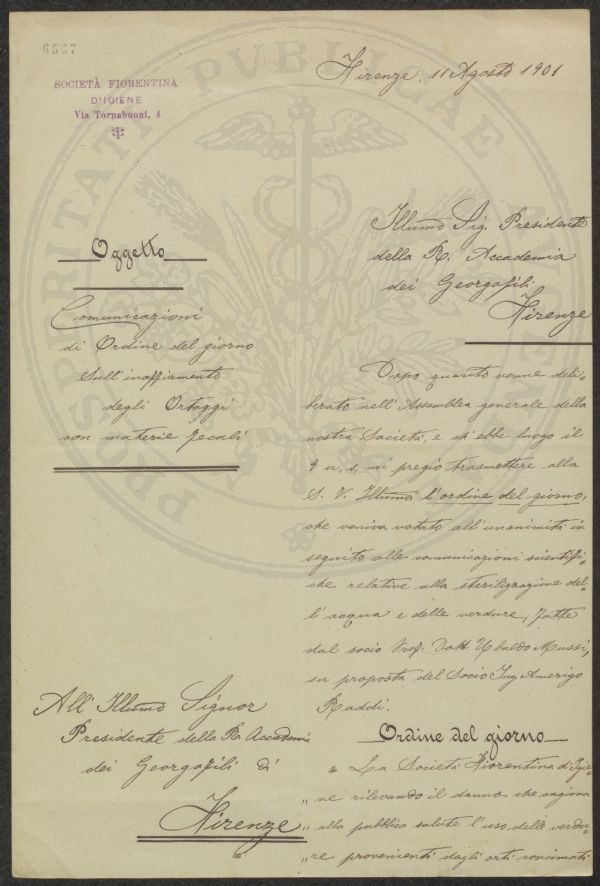 6567
SOCIETÀ FIORENTINA
D'IGIENE
Via Tornabuoni, 4
PROSPERITATI PVBLICAE AVGENDAE
Firenze, 11 Agosto 1901
Illumo Sig. Presidente
della R. Accademia
dei Georgofili
Firenze
Oggetto
Comunicazioni
di Ordine del giorno
sull'inaffiamento
degli Ortaggi
con materie fecali
Dopo quanto venne deli-
berato nell'Assemblea generale della
nostra Società, e ch'ebbe luogo il
9 u. s. mi pregio trasmettere alla
S. V. Illuma l'ordine del giorno,
che veniva votato all'unanimità in
seguito alle comunicazioni scientifi-
che relative alla sterilizzazione del-
l'acqua e delle verdure, fatte
dal socio Prof. Dott. Ubaldo Mussi,
su proposta del Socio Ing. Amerigo
Raddi.
Ordine del giorno
"La Società Fiorentina d'Igie-
"ne rilevando il danno che cagiona
"alla pubblica salute l'uso delle verdu-
"re provenienti dagli orti concimati
All'Illumo Signor
Presidente della R. Accademi
dei Georgofili di
Firenze